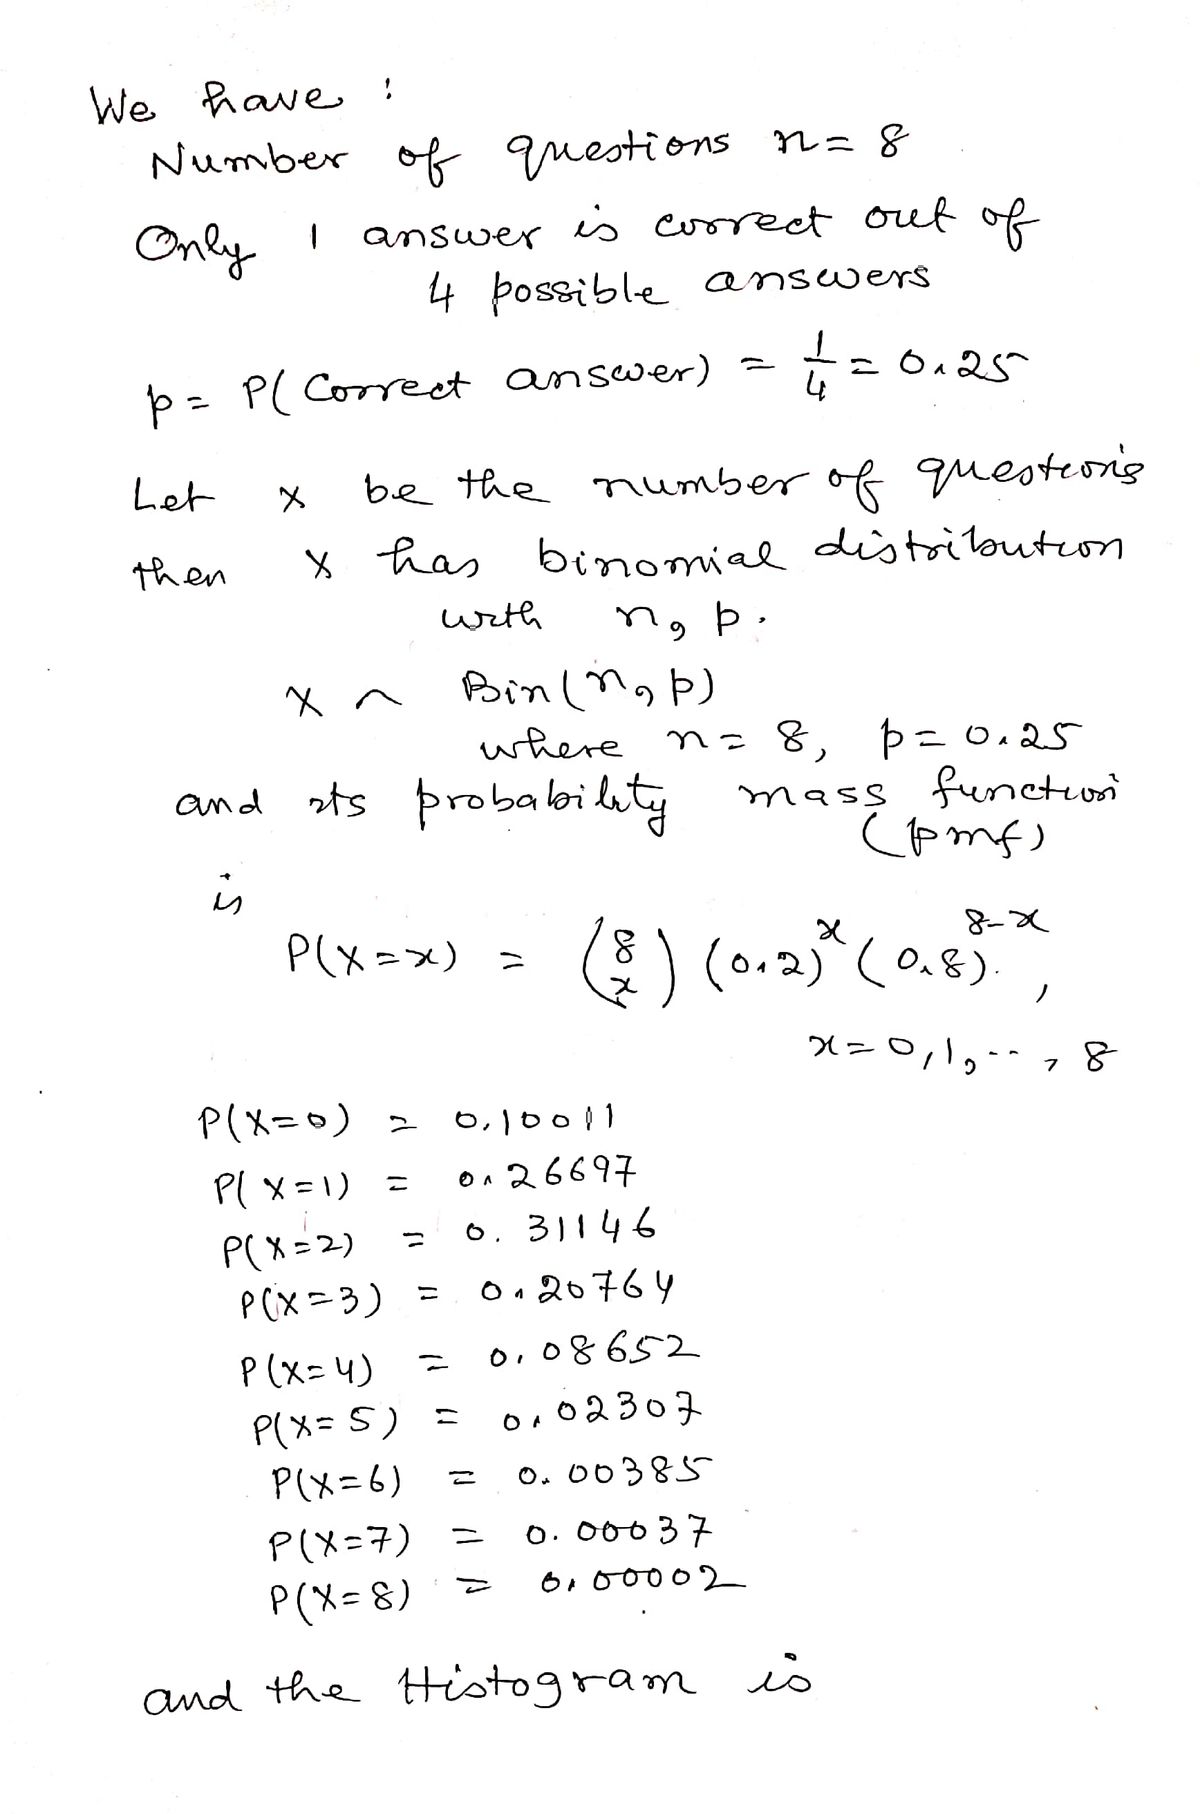 We have :
Number of questions n = 8
Only 1 answer is correct out of
4 possible answers
p = P( Correct answer) = 1/4 = 0.25
Let X be the number of questions
then X has binomial distribution
with n, p.
X ~ Bin(n, p)
where n = 8, p = 0.25
and its probability mass function
(pmf)
is
P(X=x) = (8 x) (0.2)^x (0.8)^8-x,
x = 0, 1, .., 8
P(X=0) = 0.10011
P(X=1) = 0.26697
P(X=2) = 0.31146
P(X=3) = 0.20764
P(X=4) = 0.08652
P(X=5) = 0.02307
P(X=6) = 0.00385
P(X=7) = 0.00037
P(X=8) = 0.00002
and the Histogram is